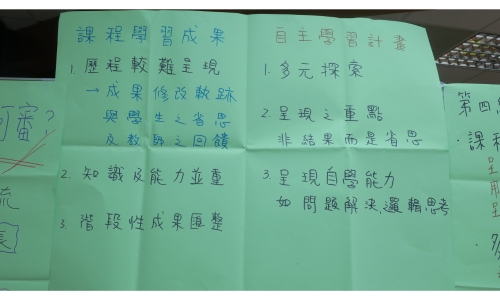 課程學習成果
1. 歷程較難呈現
→ 成果修改軌跡
與學生之省思
及教師之回饋
2. 知識及能力並重
3. 階段性成果匯整
自主學習計畫
1. 多元探索
2. 呈現之重點
非結果而是省思
3. 呈現自學能力
如問題解決、邏輯思考
審?
流
長
第四
·課程
呈
呈